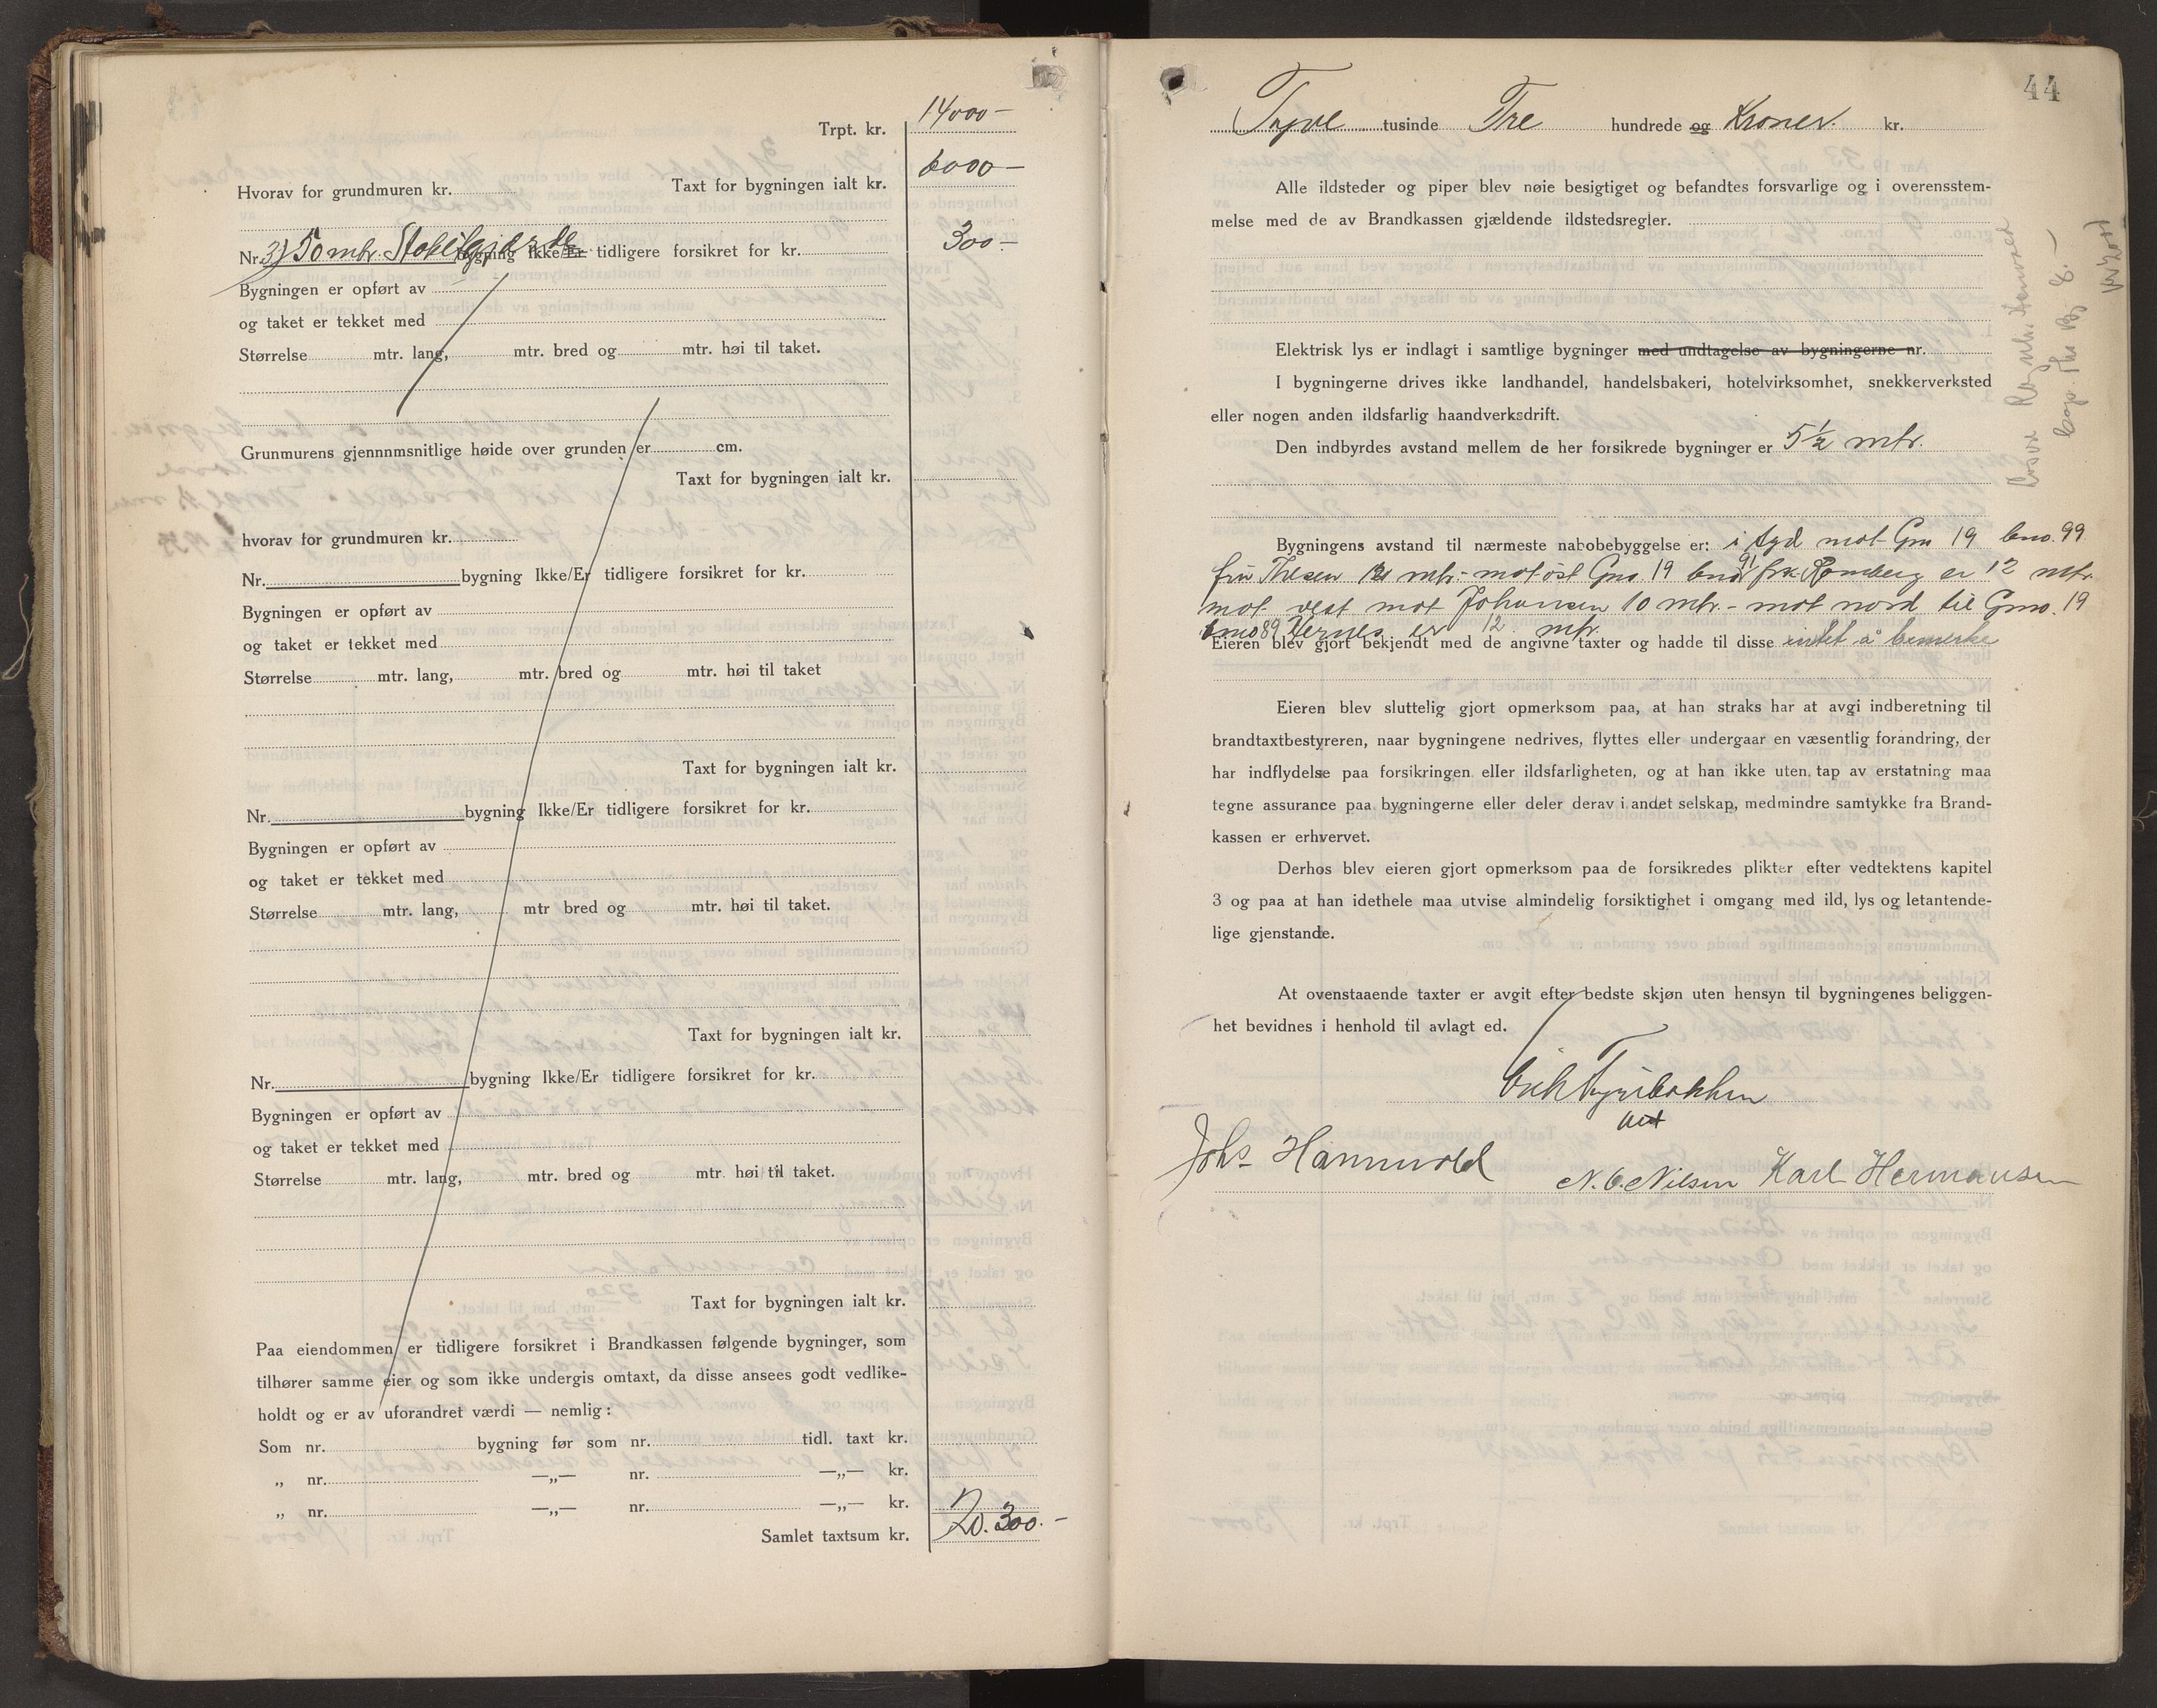 14000 —
Trpt. kr.
6000 —
Hvorav for grundmuren kr. Taxt for bygningen ialt kr.
300 —
Nr. 3) 50 mtr. Stakitgjærde bygning Ikke/Er tidligere forsikret for kr.
Bygningen er opført av
og taket er tekket med
Størrelse mtr. lang, mtr. bred og mtr. høi til taket.
Grunmurens gjennnmsnitlige høide over grunden er cm.
Taxt for bygningen ialt kr.
hvorav for grundmuren kr.
Nr. bygning Ikke/Er tidligere forsikret for kr.
Bygningen er opført av
og taket er tekket med
Størrelse mtr. lang, mtr. bred og mtr. høi til taket
Taxt for bygningen ialt kr.
Nr. bygning Ikke/Er tidligere forsikret for kr.
Bygningen er opført av
og taket er tekket med
Størrelse mtr. lang, mtr bred og mtr. høi til taket.
Taxt for bygningen ialt kr.
Nr. bygning Ikke/Er tidligere forsikret for kr.
Bygningen er opført av
og taket er tekket med
Størrelse mtr. lang, mtr. bred og mtr. høi til taket.
Taxt for bygningen ialt kr.
Paa eiendommen er tidligere forsikret i Brandkassen følgende bygninger, som
tilhører samme eier og som ikke undergis omtaxt, da disse ansees godt vedlike-
holdt og er av uforandret værdi — nemlig :
Som nr. bygning før som nr. tidl. taxt kr.
„ nr. —„— nr. —„— kr.
„ nr. —„— nr. —„— kr.
Samlet taxtsum kr. 20.300. —
44
Tyve tusinde Tre hundrede og Kroner. kr.
Alle ildsteder og piper blev nøie besigtiget og befandtes forsvarlige og i overensstem-
melse med de av Brandkassen gjældende ildstedsregler.
Elektrisk lys er indlagt i samtlige bygninger med undtagelse av bygningerne nr.
I bygningerne drives ikke landhandel, handelsbakeri, hotelvirksomhet, snekkerverksted
eller nogen anden ildsfarlig haandverksdrift.
Den indbyrdes avstand mellem de her forsikrede bygninger er 5 ½ mtr.
Bygningens avstand til nærmeste nabobebyggelse er: i syd mot Gno 19 bno. 99
fru Thesen mtr. - mot øst Gno. 19 bno 91 fra Romberg er 12 mtr.
mot vest mot Johansen 10 mtr. - mot nord til Gno. 19
bno 89 Hernes er 12 mtr.
Eieren blev gjort bekjendt med de angivne taxter og hadde til disse intet å bemerke
Eieren blev sluttelig gjort opmerksom paa, at han straks har at avgi indberetning til
brandtaxtbestyreren, naar bygningene nedrives, flyttes eller undergaar en væsentlig forandring, der
har indflydelse paa forsikringen eller ildsfarligheten, og at han ikke uten tap av erstatning maa
tegne assurance paa bygningerne eller deler derav i andet selskap, medmindre samtykke fra Brand-
kassen er erhvervet.
Derhos blev eieren gjort opmerksom paa de forsikredes plikter efter vedtektens kapitel
3 og paa at han idethele maa utvise almindelig forsiktighet i omgang med ild, lys og letantende-
lige gjenstande.
At ovenstaaende taxter er avgit efter bedste skjøn uten hensyn til bygningenes beliggen-
het bevidnes i henhold til avlagt ed.
Erik Tyribakken
Johs. Hannevold N. O. Nilsen Karl Hermansen